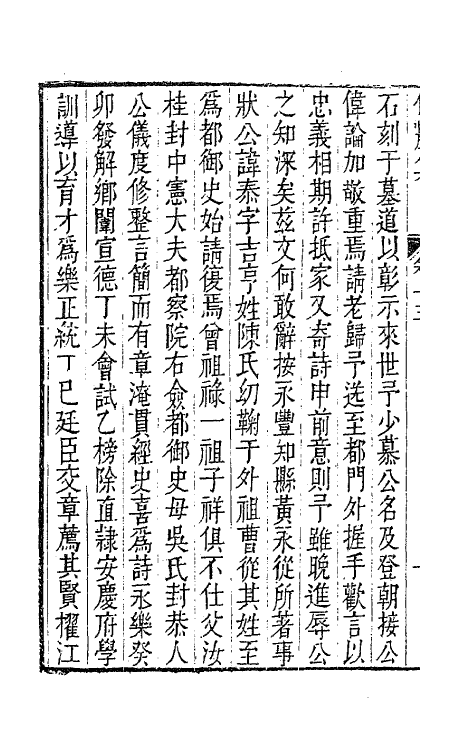 石刻于墓道以彰示來世予少慕公名及登朝接公
偉論加敬重焉請老歸予送至都門外握手歡言以
忠義相期許抵家又寄詩申前意則予雖晚進辱公
之知深矣茲文何敢辭按永豐知縣黃永從所著事
狀公諱泰字吉亨姓陳氏幼鞠于外祖曹從其姓至
爲都御史始請復焉曾祖祿一祖子祥俱不仕父汝
桂封中憲大夫都察院右僉都御史母吳氏封恭人
公儀度修整言簡而有章淹貫經史喜爲詩永樂癸
卯發解鄉闈宣德丁未會試乙榜除直隸安慶府學
訓導以育才爲樂正統丁巳廷臣交章薦其賢擢江